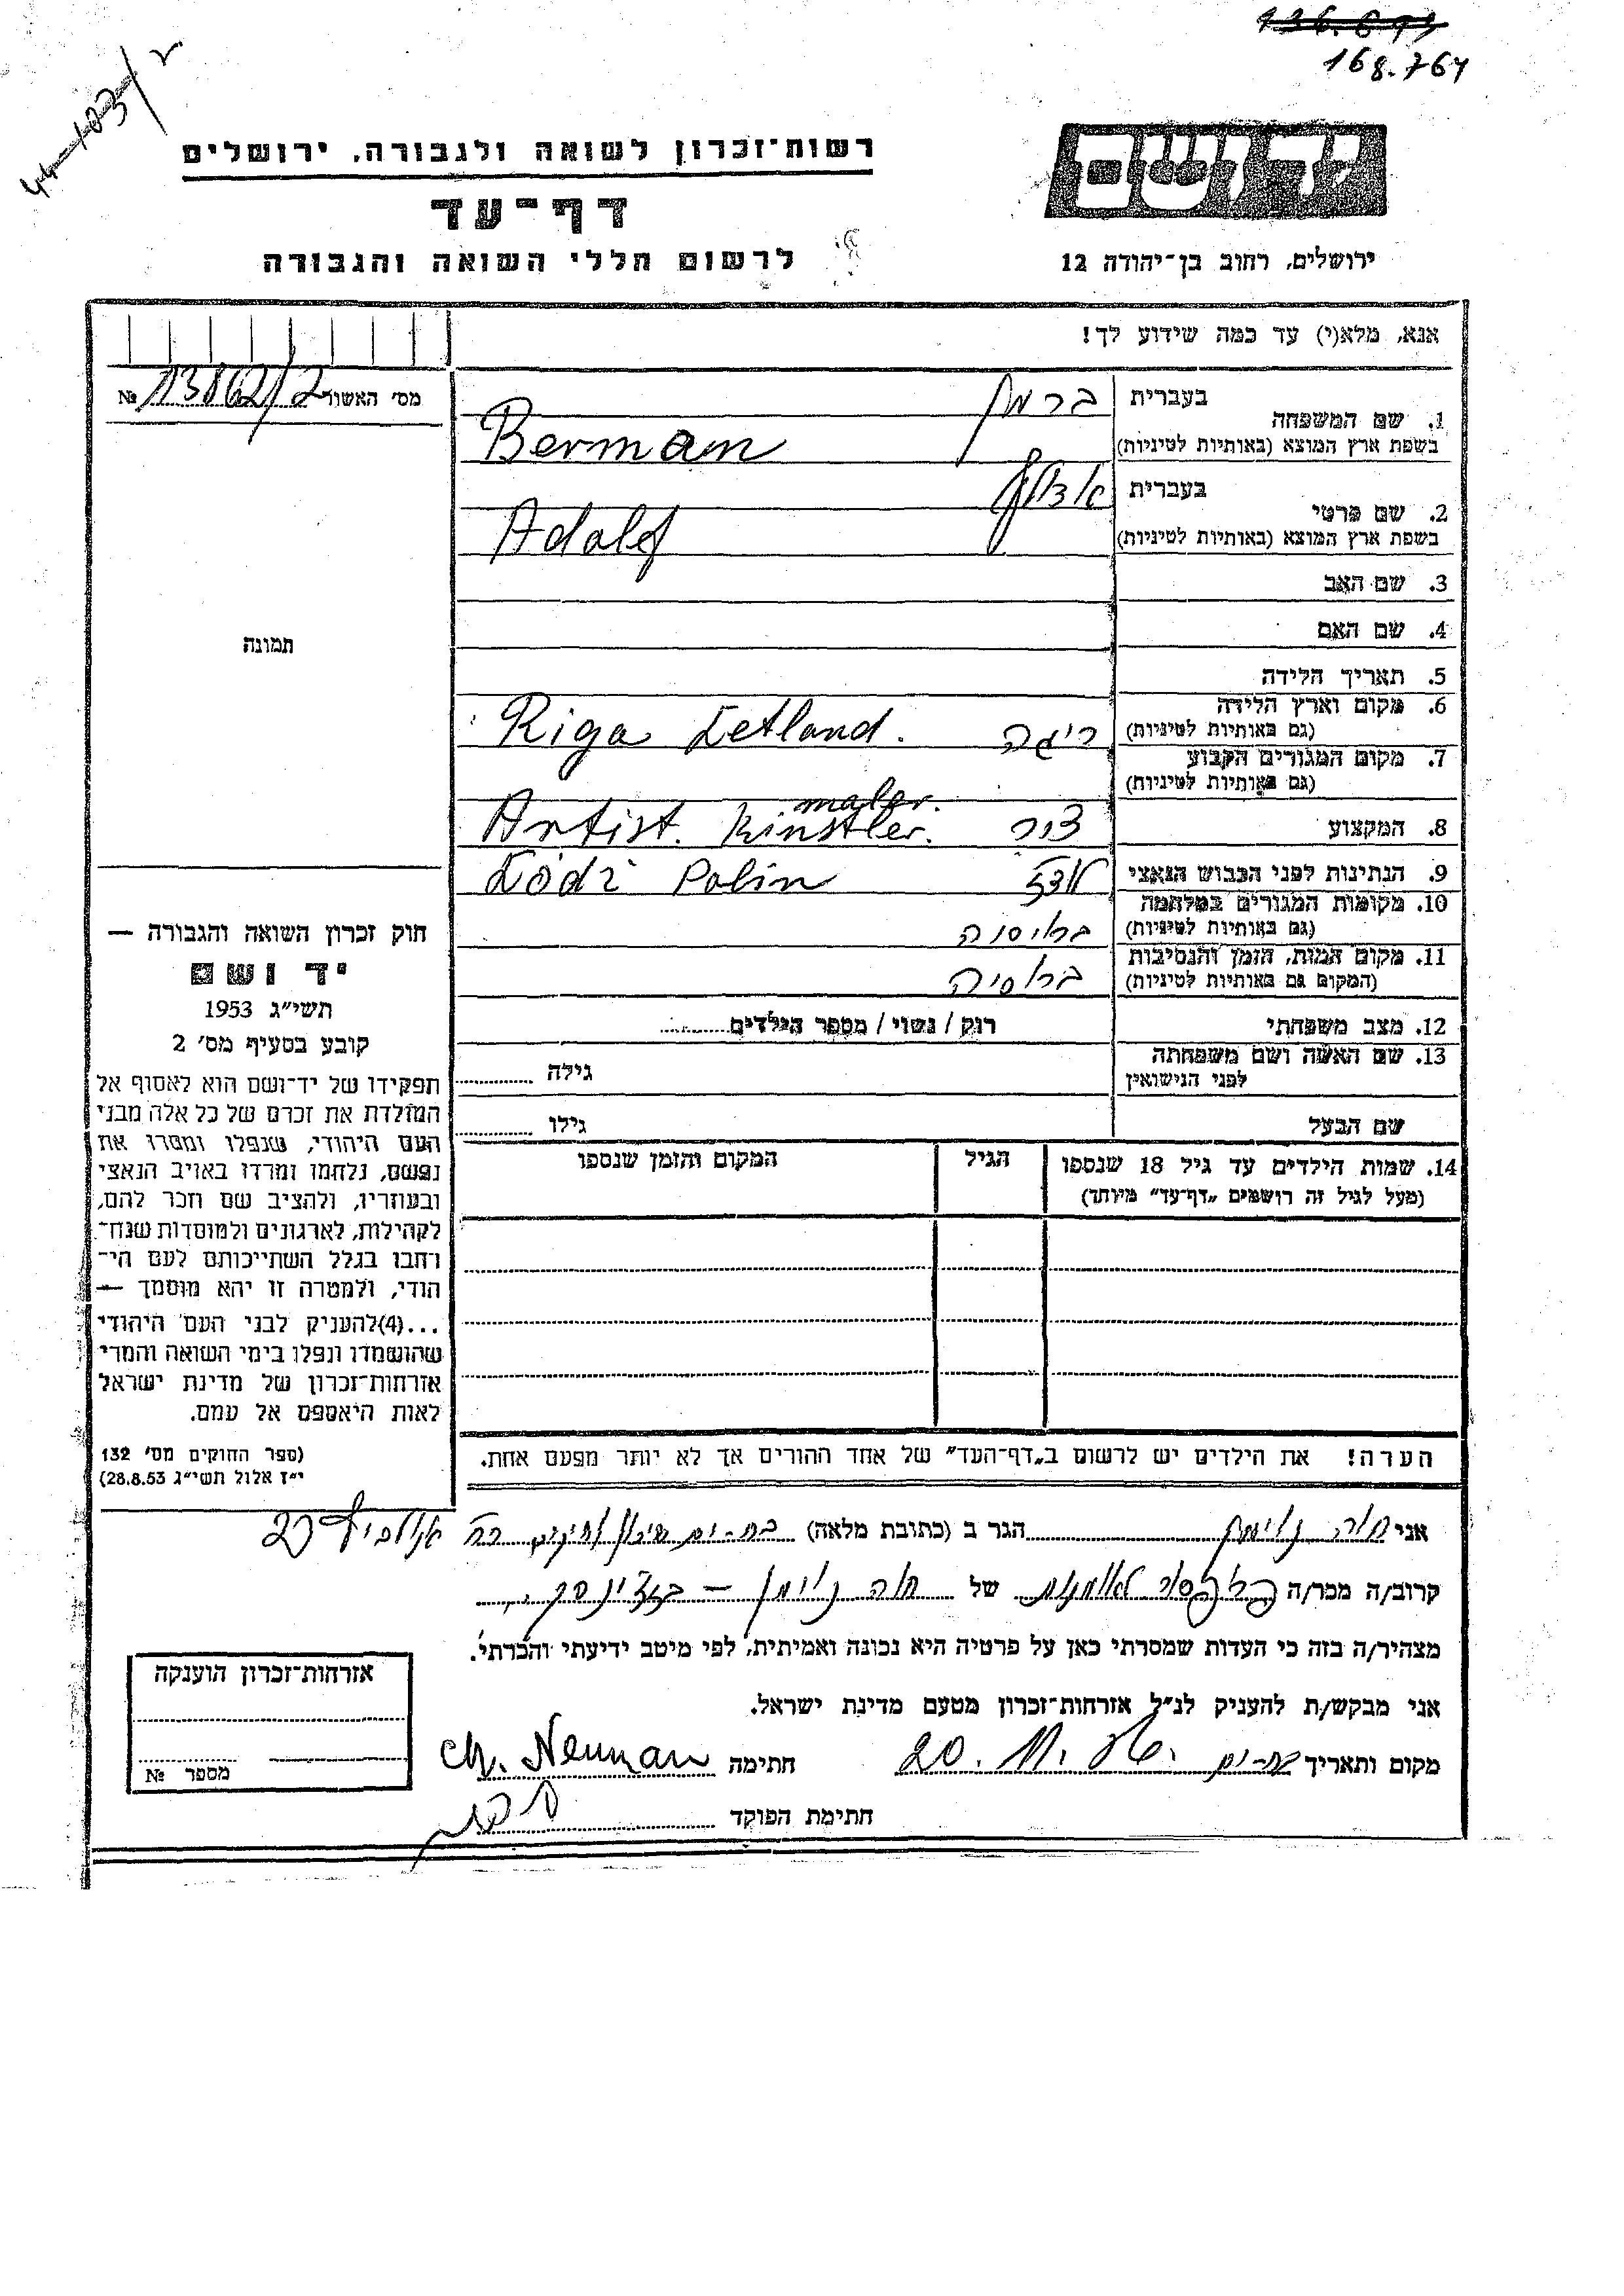 168.764
44-103/2
יד ושם
רשות־זכרון לשואה ולגבורה, ירושלים
דף־עד
לרשום חללי השואה והגבורה
ירושלים, רחוב בן־יהודה 12
אנא, מלא(י) עד כמה שידוע לך!
מס׳ האשור № 113862/2
1. שם המשפחה
בעברית ברמן
בשפת ארץ המוצא (באותיות לטיניות) Berman
2. שם פרטי
בעברית אדולף
בשפת ארץ המוצא (באותיות לטיניות) Adolf
3. שם האב
4. שם האם
5. תאריך הלידה
6. מקום וארץ הלידה
(גם באותיות לטיניות) ריגה Riga Letland.
7. מקום המגורים הקבוע
(גם באותיות לטיניות)
maler.
8. המקצוע צייר Artist. Kinstler.
9. הנתינות לפני הכבוש הנאצי לודז Lódź Polin
10. מקומות המגורים במלחמה
(גם באותיות לטיניות)
11. מקום המות, הזמן והנסיבות
(המקום גם באותיות לטיניות)
12. מצב משפחתי רווק / נשוי / מספר הילדים
13. שם האשה ושם משפחתה
לפני הנישואין גילה
שם הבעל גילו
14. שמות הילדים עד גיל 18 שנספו הגיל המקום והזמן שנספו
(מעל לגיל זה רושמים „דף־עד” מיוחד)
הערה! את הילדים יש לרשום ב„דף־העד” של אחד ההורים אך לא יותר מפעם אחת.
תמונה
חוק זכרון השואה והגבורה —
יד ושם
תשי״ג 1953
קובע בסעיף מס׳ 2
תפקידו של יד־ושם הוא לאסוף אל
המולדת את זכרם של כל אלה מבני
העם היהודי, שנפלו ומסרו את
נפשם, נלחמו ומרדו באויב הנאצי
ובעוזריו, ולהציב שם וזכר להם,
לקהילות, לארגונים ולמוסדות שנח־
רבו בגלל השתייכותם לעם הי־
הודי, ולמטרה זו יהא מוסמך —
...(4)להעניק לבני העם היהודי
שהושמדו ונפלו בימי השואה והמרי
אזרחות־זכרון של מדינת ישראל
לאות היאספם אל עמם.
(ספר החוקים מס׳ 132
י״ז אלול תשי״ג 28.8.53)
אני חוה ניומן הגר ב (כתובת מלאה) בת-ים
קרוב/ה מכר/ה של חוה ניומן
מצהיר/ה בזה כי העדות שמסרתי כאן על פרטיה היא נכונה ואמיתית, לפי מיטב ידיעתי והכרתי.
אני מבקש/ת להעניק לנ״ל אזרחות־זכרון מטעם מדינת ישראל.
מקום ותאריך בת-ים 20. 11. חתימה Ch. Neuman
חתימת הפוקד
אזרחות־זכרון הוענקה
מספר №